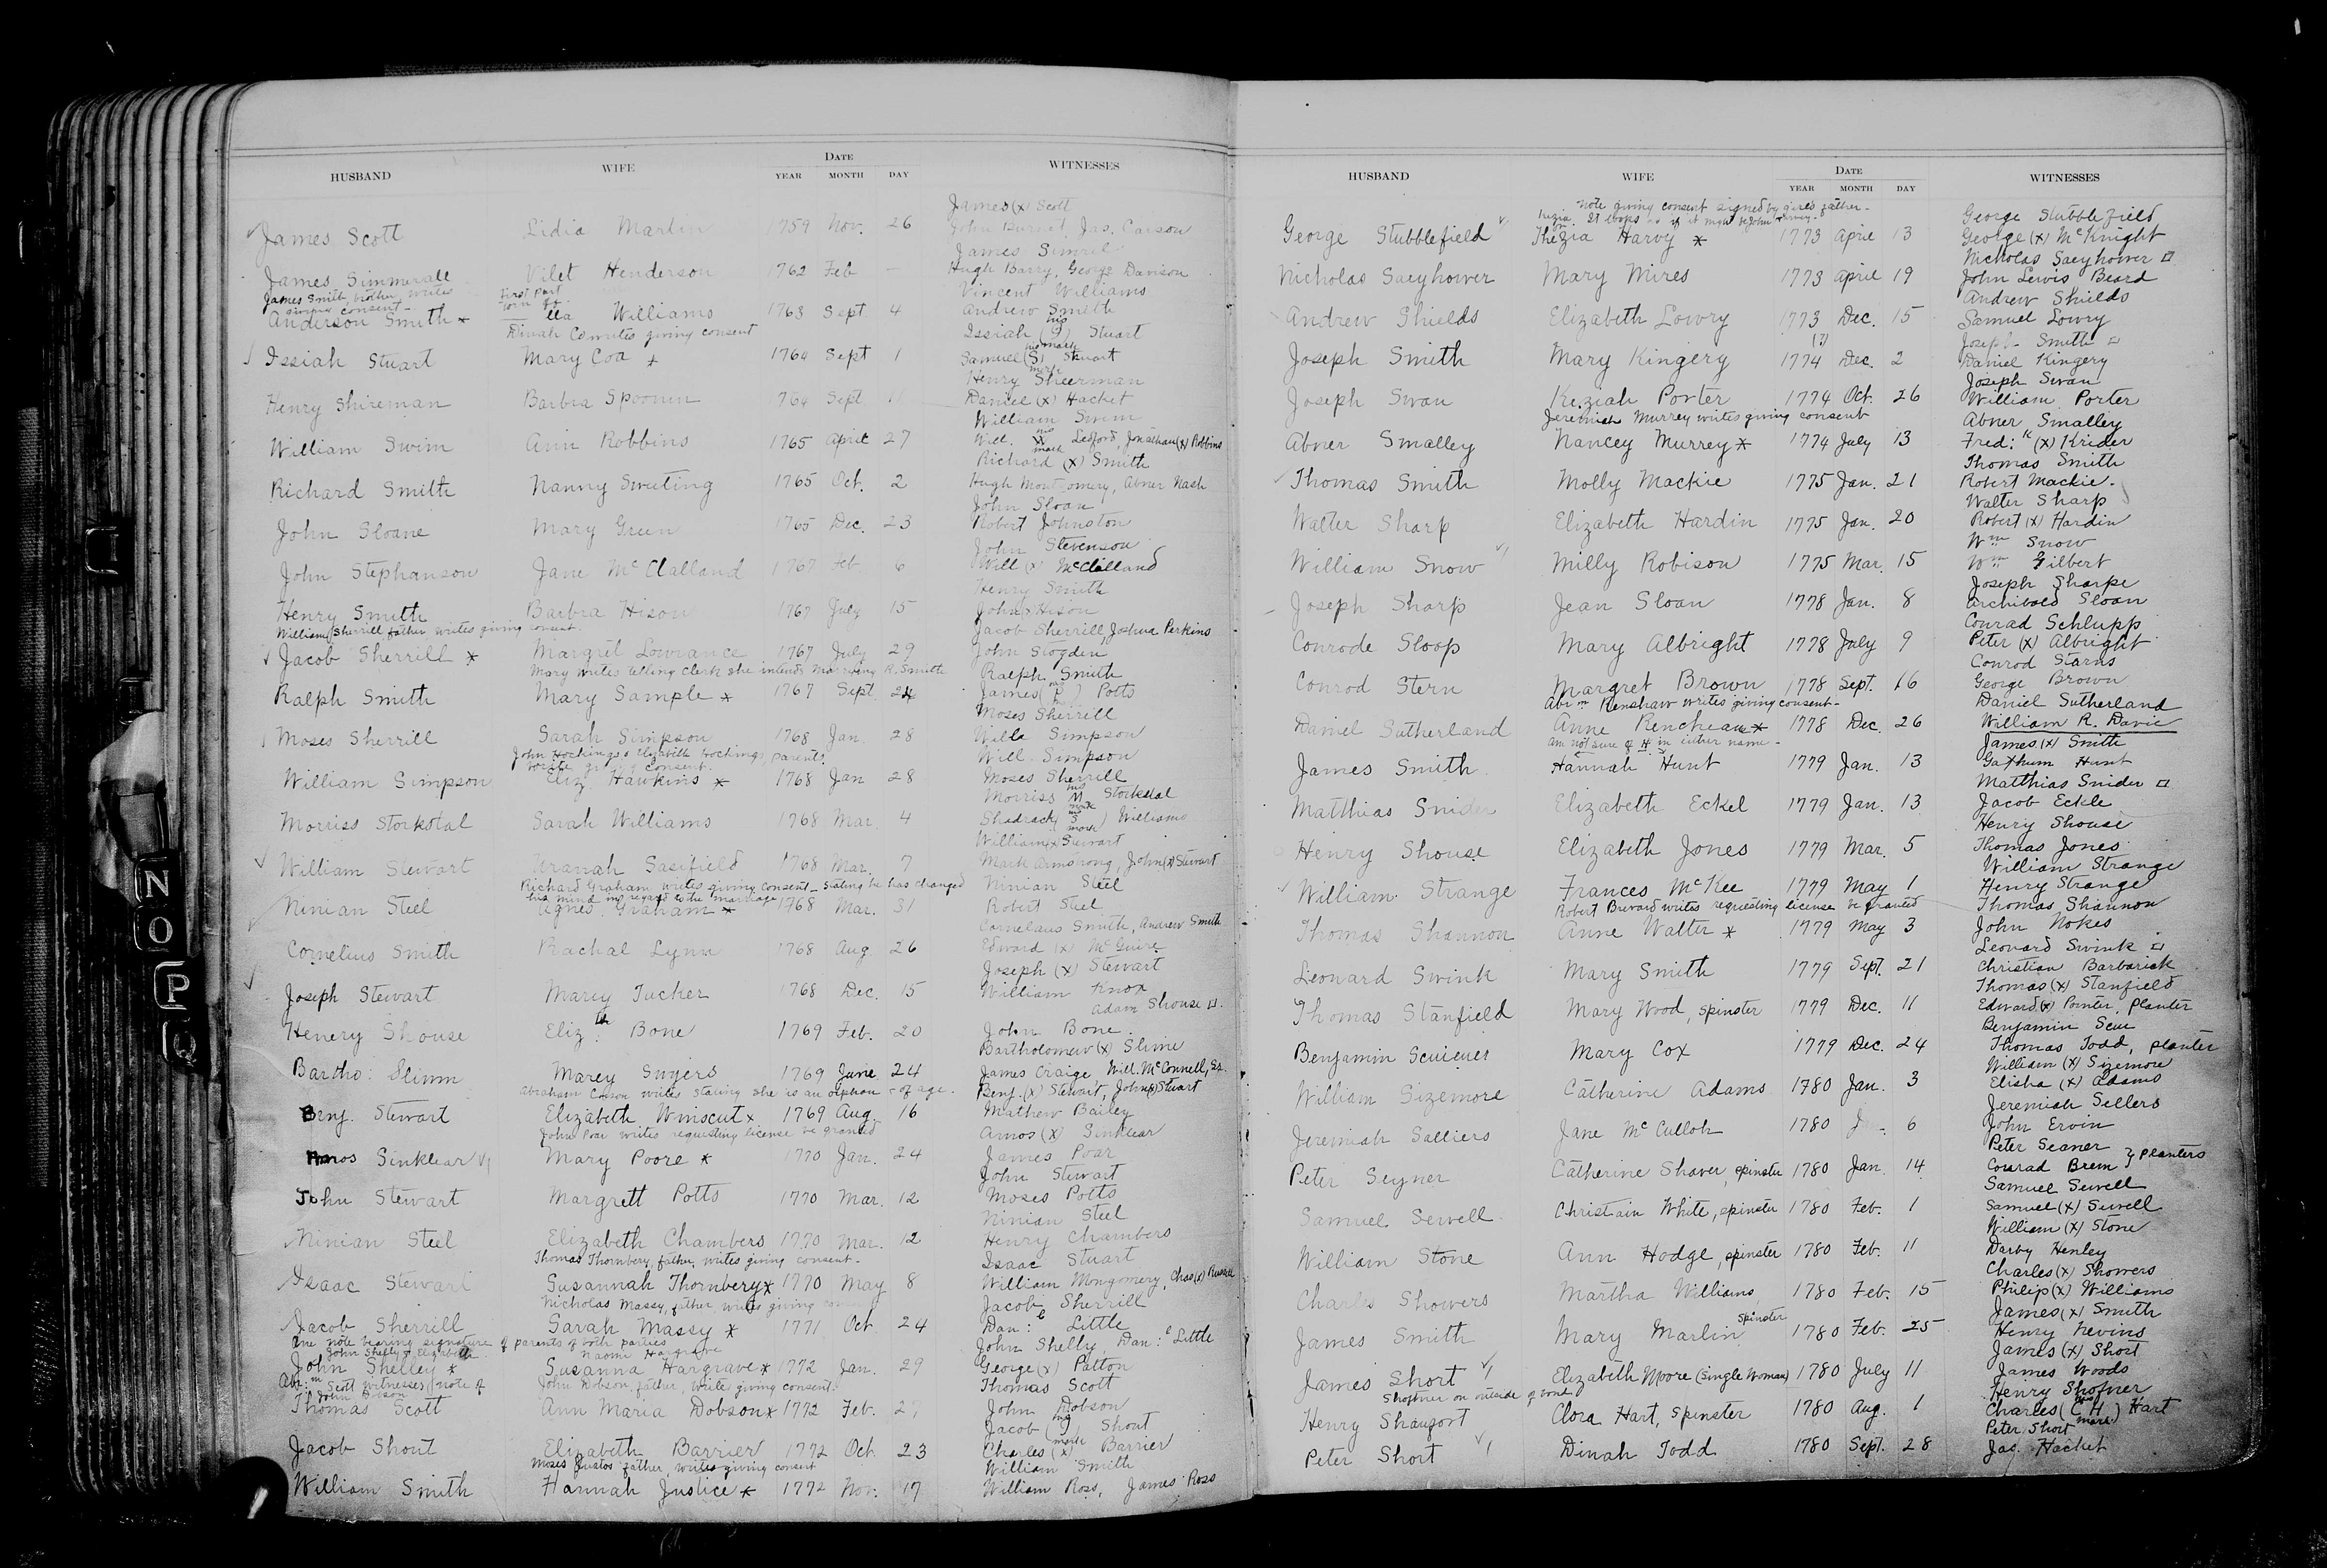 HUSBAND WIFE DATE WITNESSES
YEAR MONTH DAY
James (x) Scott
James Scott Lidia Martin 1759 Nov. 26 John Burnet, Jas. Carson
James Simril
James Simmerall Vilet Henderson 1762 Feb — Hugh Barry, George Davison
James Smith, brother, writes giving consent - First part torn off Vincent Williams
Anderson Smith * lla Williams 1763 Sept 4 Andrew Smith
Dinah Co writes giving consent Issiah (his mark) Stuart
Issiah Stuart Mary Coa * 1764 Sept 1 Samuel (his S mark) Stuart
Henry Sheerman
Henry Shireman Barbra Spoonen 1764 Sept 11 Daniel (x) Hachet
William Swim
William Swim Ann Robbins 1765 April 27 Will. (his mark) Ledford, Jonathan (x) Robbins
Richard (x) Smith
Richard Smith Nanny Sweting 1765 Oct. 2 Hugh Montgomery, Abner Nash
John Sloan
John Sloane Mary Green 1765 Dec. 23 Robert Johnston
John Stevenson
John Stephanson Jane McClalland 1767 Feb 6 Will (x) McClelland
Henry Smith
Henry Smith Barbra Hison 1767 July 15 John (x) Hison
William Sherrill, father, writes giving consent. Jacob Sherrill, Joshua Perkins
Jacob Sherrill * Margret Lowrance 1767 July 29 John Slogden
Mary writes telling clerk she intends marrying R. Smith Ralph Smith
Ralph Smith Mary Sample * 1767 Sept. 24 James (P) Potts
Moses Sherrill
Moses Sherrill Sarah Simpson 1768 Jan. 28 Wille Simpson
John Hockings & Elizabeth Hockings, parents, write giving consent. Will. Simpson
William Simpson Eliz. Hawkins * 1768 Jan 28 Moses Sherrill
Morriss (his M mark) Stockdal
Morriss Storkstal Sarah Williams 1768 Mar. 4 Shadrach (his S mark) Williams
William (x) Stewart
William Stewart Uranah Sasifield 1768 Mar. 7 Mark Armstrong, John (x) Stewart
Richard Graham writes giving consent - stating he has changed his mind in regard to the marriage Ninian Steel
Ninian Steel Agnes Graham * 1768 Mar. 31 Robert Steel
Cornelius Smith, Andrew Smith
Cornelius Smith Rachal Lynn 1768 Aug 26 Edward (x) McGuire
Joseph (x) Stewart
Joseph Stewart Marey Tucker 1768 Dec. 15 William Knox
Adam Shouse
Henery Shouse Eliz:th Bone 1769 Feb. 20 John Bone.
Bartholomew (x) Slime
Bartho: Slimm Marey Suyers 1769 June 24 James Craige, Will. McConnell, Es.
Abraham writes stating she is an orphan & of age. Benj. (x) Stewart, John (x) Stuart
Benj. Stewart Elizabeth Winscut * 1769 Aug. 16 Mathew Bailey
John Poar writes requesting license be granted Amos (x) Sinklear
Amos Sinklear Mary Poore * 1770 Jan. 24 James Poar
John Stewart
John Stewart Margrett Potts 1770 Mar. 12 Moses Potts
Ninian Steel
Ninian Steel Elizabeth Chambers 1770 Mar. 12 Henry Chambers
Thomas Thornbery, father, writes giving consent - Isaac Stuart
Isaac Stewart Susannah Thornbery * 1770 May 8 William Mongomery, Chas (x) Russell
Nicholas Massy, father, writes giving consent Jacob Sherrill
Jacob Sherrill Sarah Massy * 1771 Oct 24 Dan:l Little
One note bearing signature of parents of both parties John Shelly & Elizabeth Naomi Hargrave John Shelly, Dan:l Little
John Shelley * Susanna Hargrave * 1772 Jan. 29 George (x) Patton
Abr:m Scott witnesses note of John Dobson John Dobson, father, writes giving consent. Thomas Scott
Thomas Scott Ann Maria Dobson * 1772 Feb. 27 John Dobson
Jacob (his mark) Shout
Jacob Shout Elizabeth Barrier 1772 Oct. 23 Charles (x) Barrier
Moses Justos father, writes giving consent William Smith
William Smith Hannah Justice * 1772 Nov. 17 William Ross, James Ross
N
O
P
Q
HUSBAND WIFE DATE WITNESSES
YEAR MONTH DAY
Note giving consent signed by girls father - It looks as if it might be John Harvey. George Stubblefield
George Stubblefield Thezia Harvy * 1773 April 13 George (x) McKnight
Nicholas Saeyhower
Nicholas Saeyhower Mary Mires 1773 April 19 John Lewis Beard
Andrew Shields
Andrew Shields Elizabeth Lowry 1773 Dec. 15 Samuel Lowry
(?) Joseph Smith
Joseph Smith Mary Kingery 1774 Dec. 2 Daniel Kingery
Joseph Swan
Joseph Swan Keziah Porter 1774 Oct. 26 William Porter
Jeremiah Murrey writes giving consent Abner Smalley
Abner Smalley Nancey Murrey * 1774 July 13 Fred:k (x) Krider
Thomas Smith
Thomas Smith Molly Mackie 1775 Jan. 21 Robert Mackie.
Walter Sharp
Walter Sharp Elizabeth Hardin 1775 Jan. 20 Robert (x) Hardin
Wm Snow
William Snow Milly Robison 1775 Mar. 15 Wm Gilbert
Joseph Sharpe
Joseph Sharp Jean Sloan 1778 Jan. 8 Archibald Sloan
Conrad Schlupp
Conrode Sloop Mary Albright 1778 July 9 Peter (x) Albright
Conrod Starns
Conrod Stern Margret Brown 1778 Sept. 16 George Brown
Abr:m Renshaw writes giving consent - Daniel Sutherland
Daniel Sutherland Anne Rencheau * 1778 Dec. 26 William R. Davie
Am not sure of H in either name - James (x) Smith
James Smith Hannah Hunt 1779 Jan. 13 Gathum Hunt
Matthias Snider
Matthias Snider Elizabeth Eckel 1779 Jan. 13 Jacob Eckle
Henry Shouse
Henry Shouse Elizabeth Jones 1779 Mar. 5 Thomas Jones
William Strange
William Strange Frances McKee 1779 May 1 Henry Strange
Robert Brevard writes requesting license be granted Thomas Shannon
Thomas Shannon Anne Walter * 1779 May 3 John Nokes
Leonard Swink
Leonard Swink Mary Smith 1779 Sept. 21 Christian Barbarick
Thomas (x) Stanfield
Thomas Stanfield Mary Wood, spinster 1779 Dec. 11 Edward (x) Pointer, planter
Benjamin Scui
Benjamin Scuieues Mary Cox 1779 Dec. 24 Thomas Todd, planter
William (x) Sizemore
William Sizemore Catherine Adams 1780 Jan. 3 Elisha (x) Adams
Jeremiah Sellers
Jeremiah Salliers Jane McCulloh 1780 Jan. 6 John Ervin
Peter Seaner
Peter Seyner Catherine Shaver, spinster 1780 Jan. 14 Conrad Brem } planters
Samuel Sewell
Samuel Sewell Christain White, spinster 1780 Feb. 1 Samuel (x) Sewell
William (x) Stone
William Stone Ann Hodge, spinster 1780 Feb. 11 Darby Henley
Charles (x) Showers
Charles Showers Martha Williams 1780 Feb. 15 Philip (x) Williams
spinster James (x) Smith
James Smith Mary Marlin 1780 Feb. 25 Henry Nevins
James (x) Short
James Short Elizabeth Moore (Single Woman) 1780 July 11 James Woods
Shoffner on outside of bond Henry Shofner
Henry Shaugort Clora Hart, spinster 1780 Aug. 1 Charles (his C H mark) Hart
Peter Short
Peter Short Dinah Todd 1780 Sept. 28 Jas. Hacket